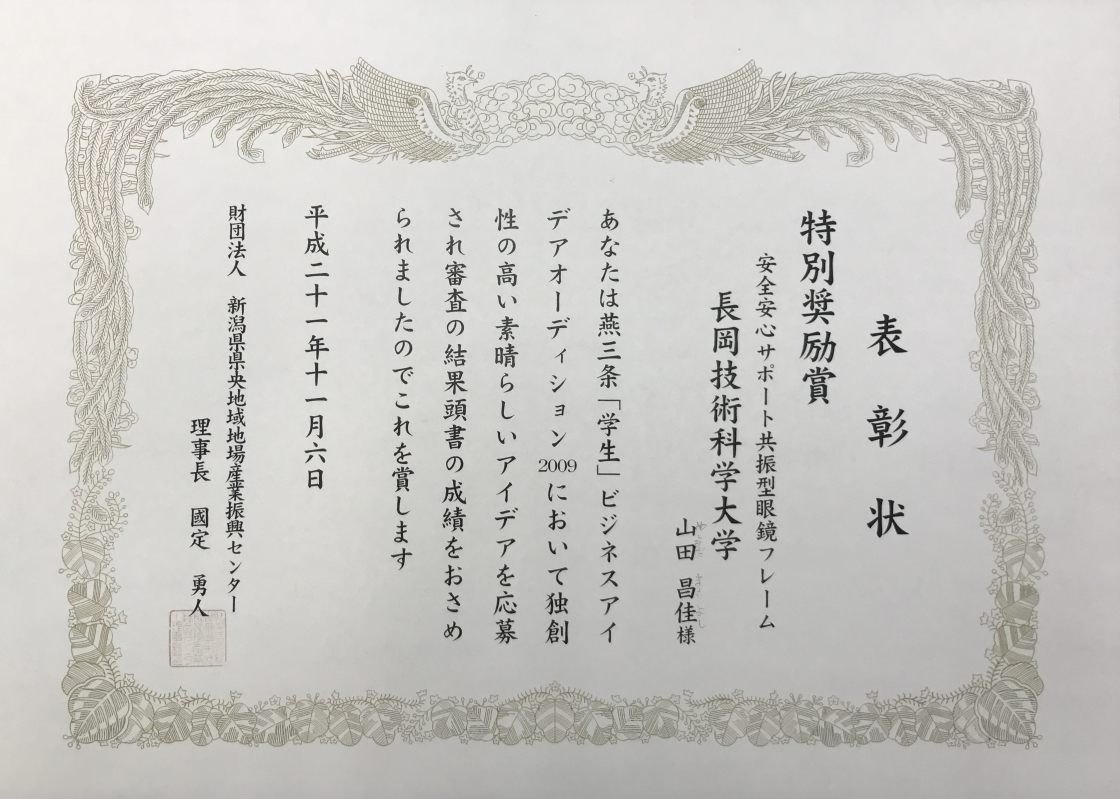 表彰状
特別奨励賞
安全安心サポート共振型眼鏡フレーム
長岡技術科学大学
山田 昌佳様
あなたは燕三条「学生」ビジネスアイ
デアオーディション2009において独創
性の高い素晴らしいアイデアを応募
され審査の結果頭書の成績をおさめ
られましたのでこれを賞します
平成二十一年十一月六日
財団法人 新潟県県央地域地場産業振興センター
理事長 國定 勇人